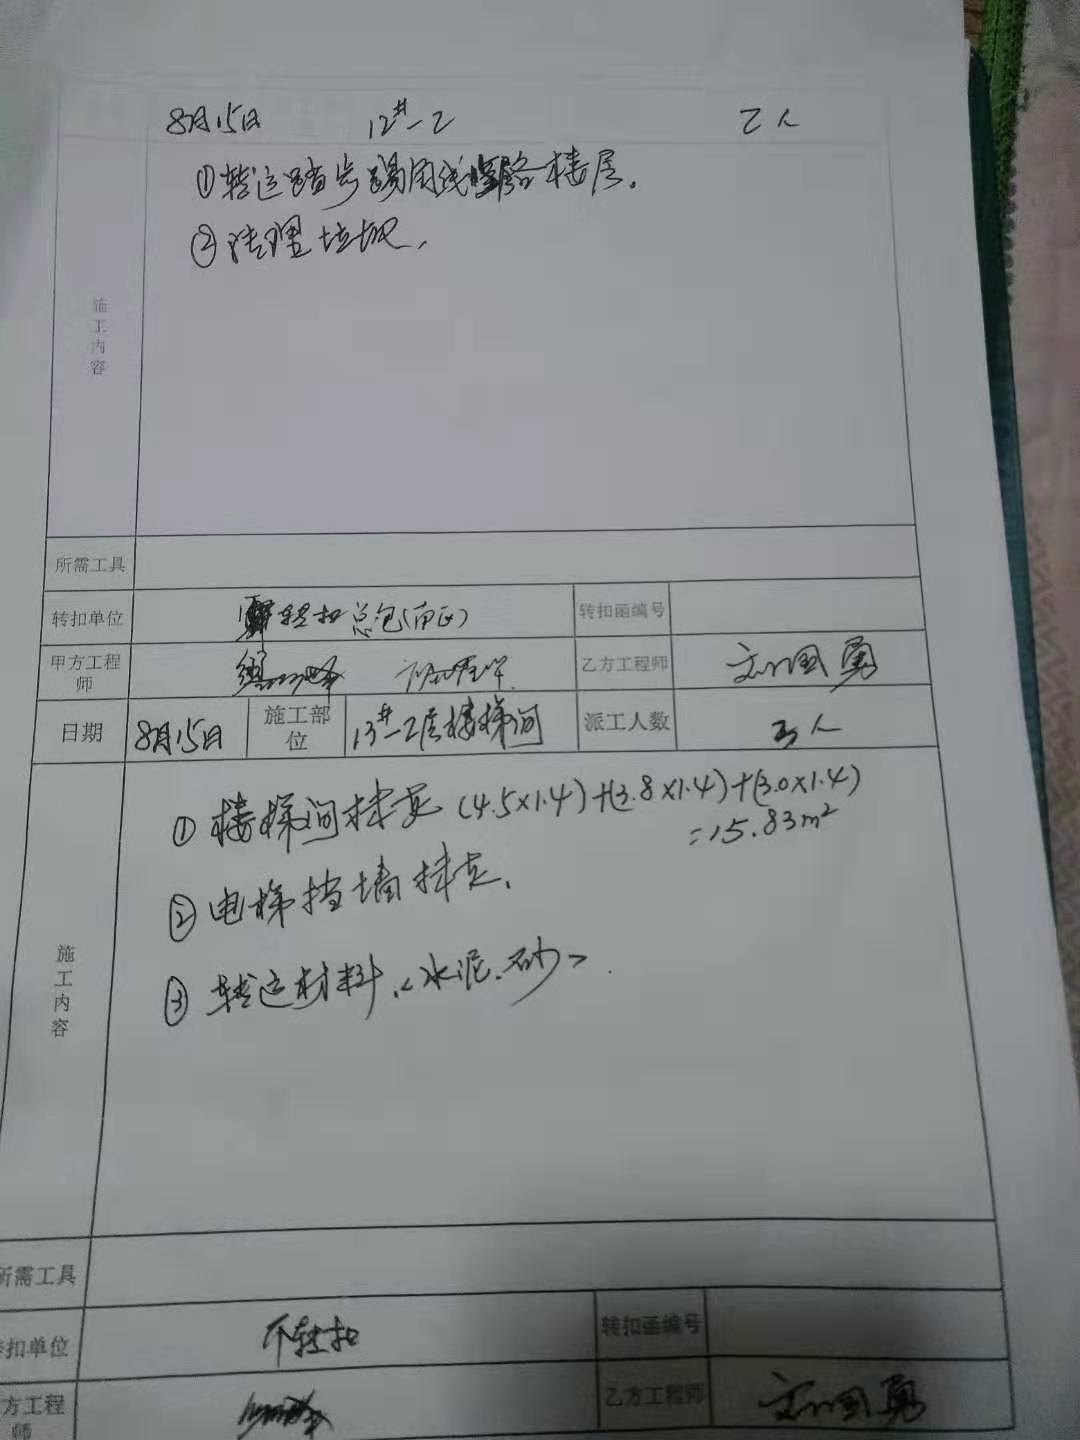 8月15日 12#-2 2人
①转运踏步踢用线 路楼层.
②清理垃圾,
施工内容
所需工具
转扣单位 转扣总包(南正) 转扣函编号
甲方工程师 乙方工程师 文国勇
日期 8月15日 施工部位 13#-2层楼梯间 派工人数 3人
①楼梯间抹灰 (4.5×1.4)+(3.8×1.4)+(3.0×1.4)
=15.83m²
②电梯挡墙抹灰.
③转运材料.<水泥.砂>.
施工内容
所需工具
转扣单位 不转扣 转扣函编号
方工程师 乙方工程师 文国勇